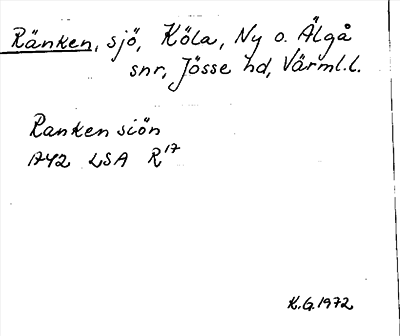 Ränken, sjö, Köla, Ny o. Älgå
snr, Jösse hd, Värml.l.
Ranken siön
1742 LSA R17
K.G. 1972